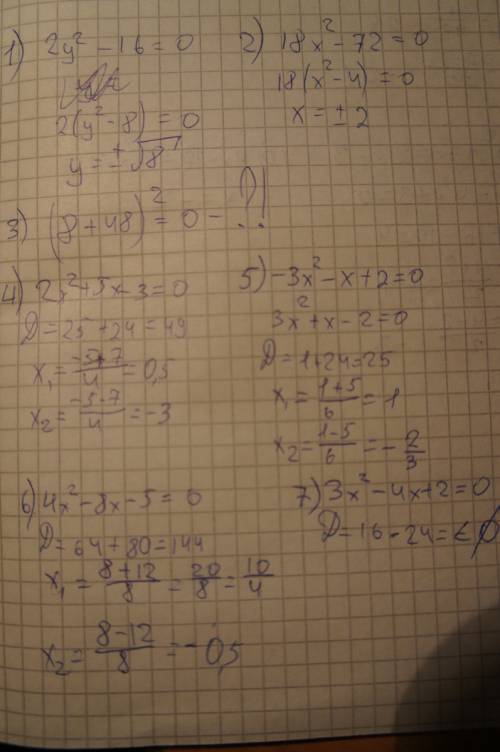 1) 2y² - 16 = 0
2(y² - 8) = 0
y = ±√8
2) 18x² - 72 = 0
18(x² - 4) = 0
x = ± 2
3) (8 + 48)² = 0 - ?!
4) 2x² + 5x - 3 = 0
D = 25 + 24 = 49
x₁ = (-5+7)/4 = 0,5
x₂ = (-5-7)/4 = -3
5) -3x² - x + 2 = 0
3x² + x - 2 = 0
D = 1 + 24 = 25
x₁ = (1+5)/6 = 1
x₂ = (1-5)/6 = -2/3
6) 4x² - 8x - 5 = 0
D = 64 + 80 = 144
x₁ = (8+12)/8 = 20/8 = 10/4
x₂ = (8-12)/8 = -0,5
7) 3x² - 4x + 2 = 0
D = 16 - 24 = < ∅